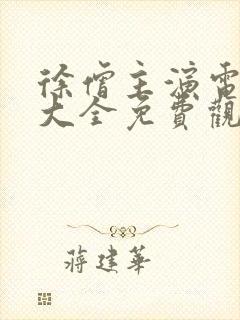 徐僧主演電
大全免費觀
蔣建華